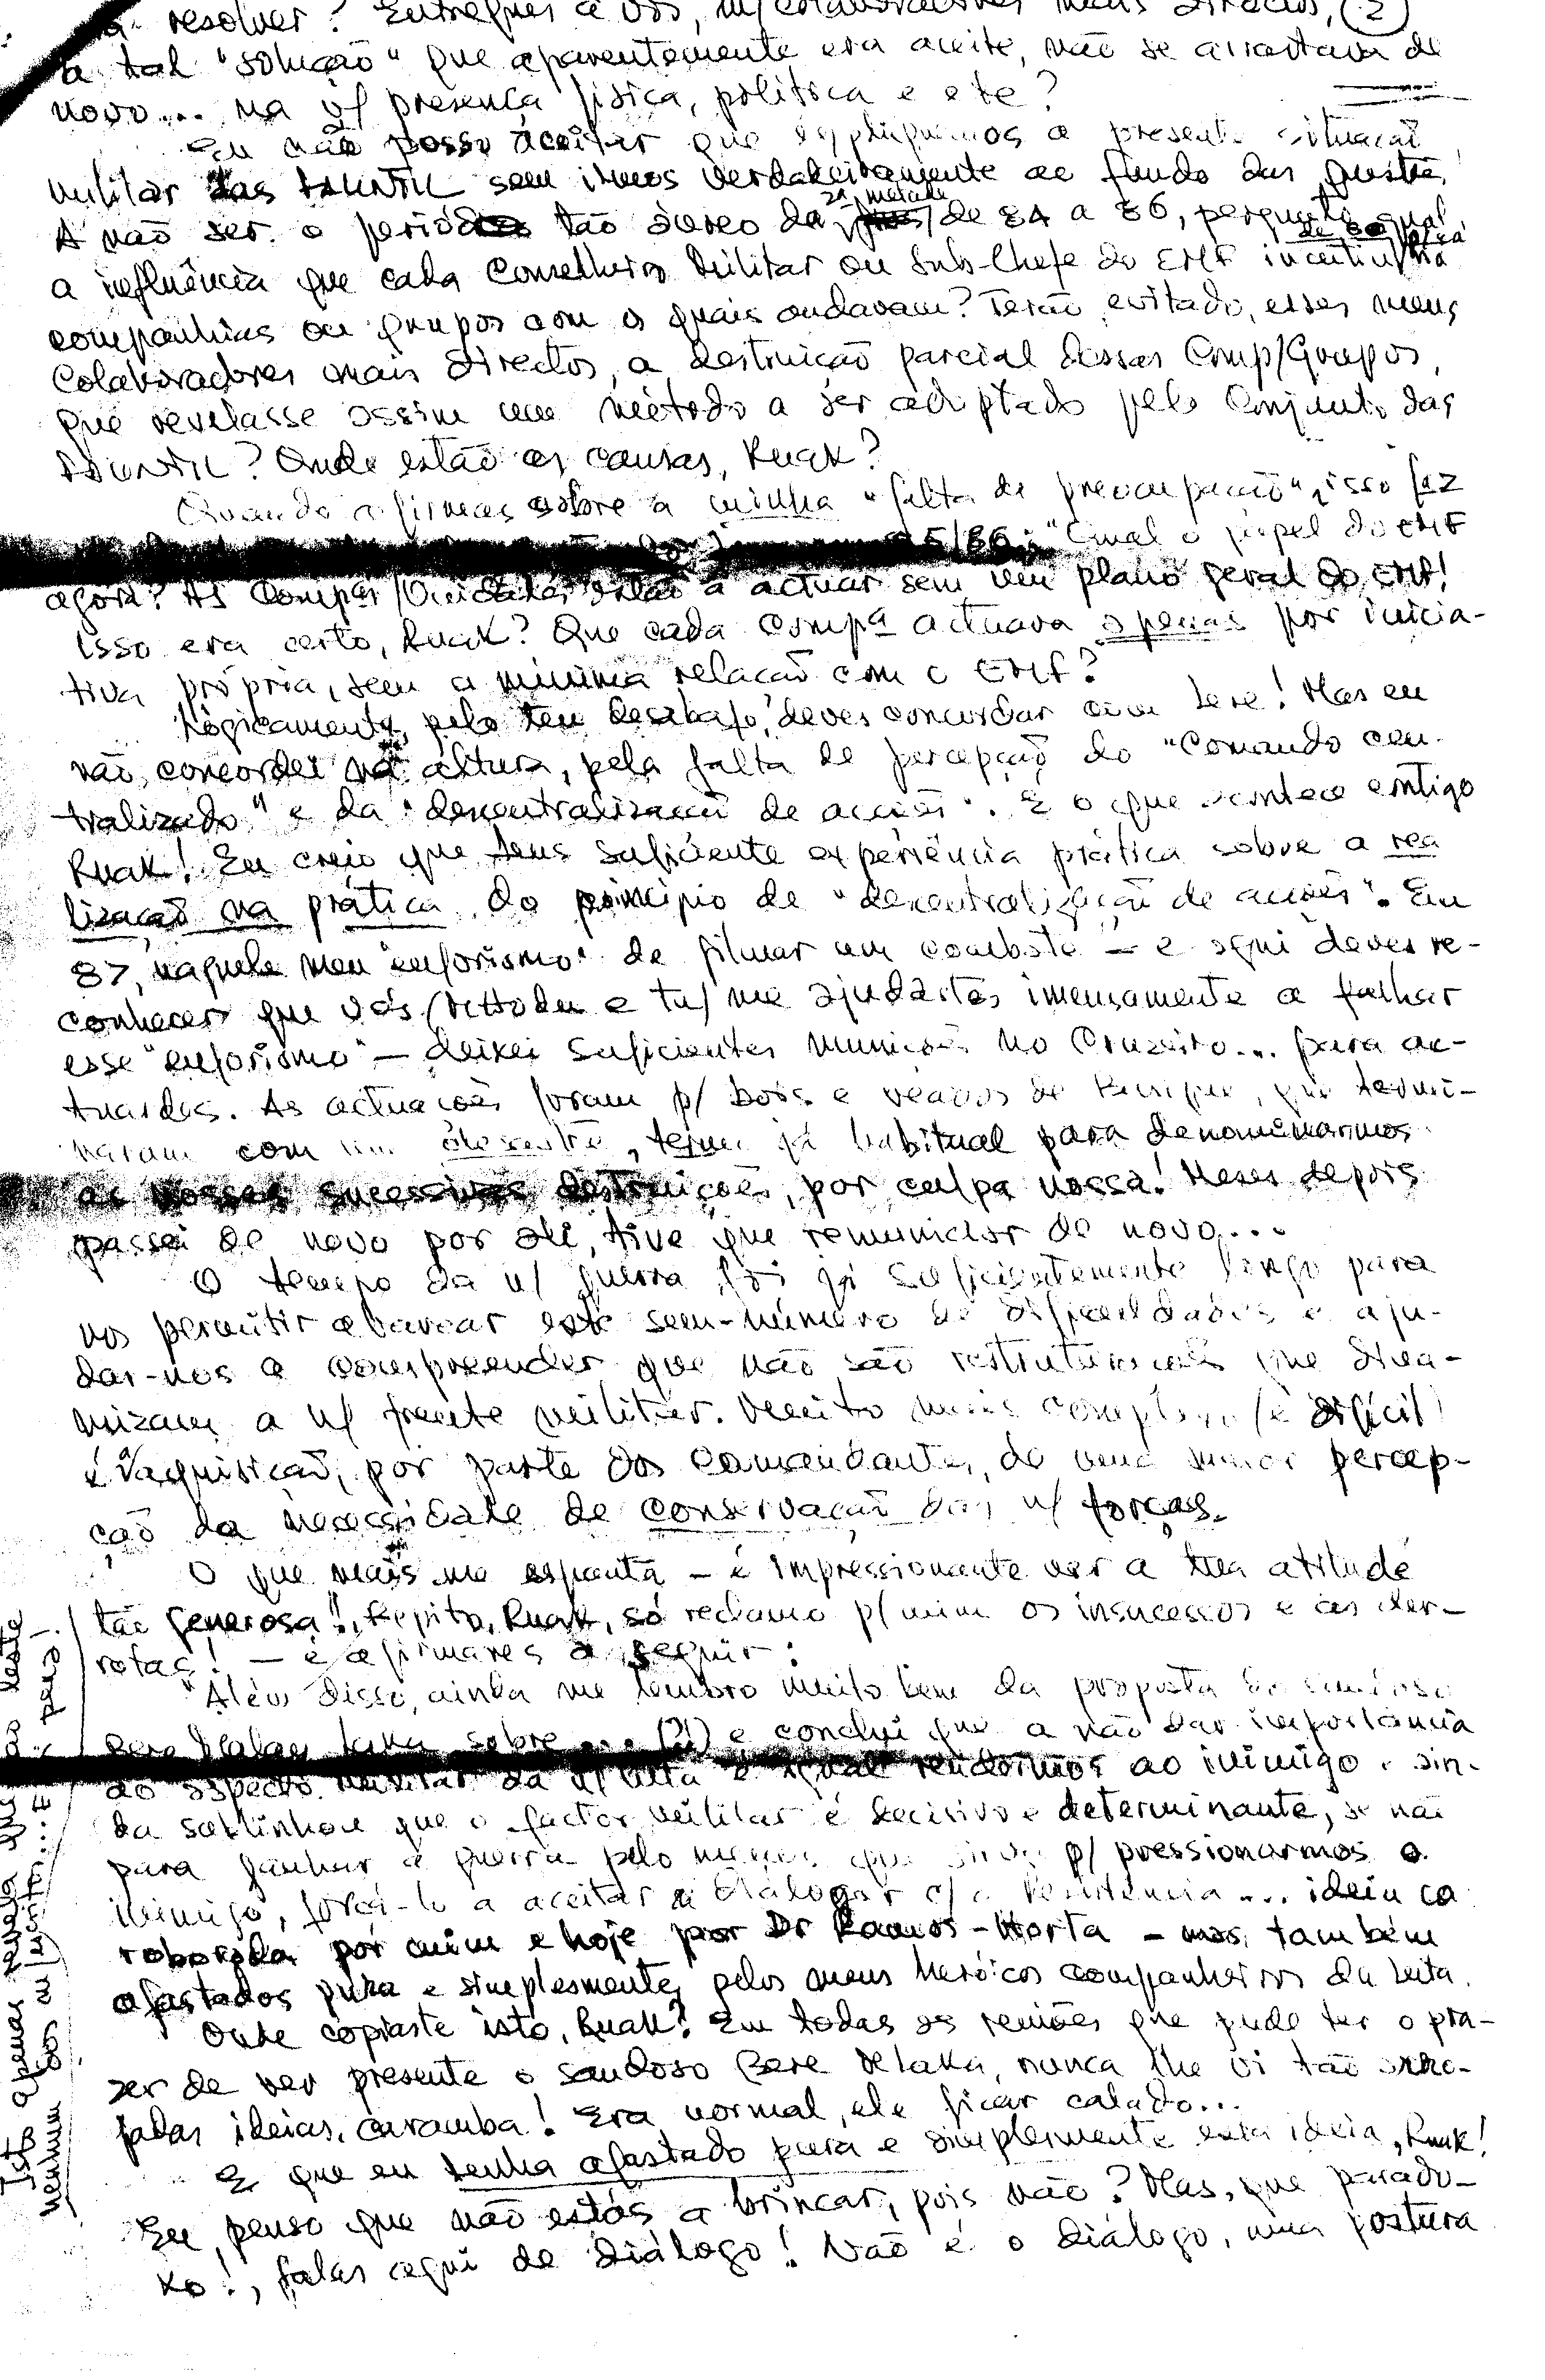 resolver? Entregues a vós, m/colaboradores mais directos, (2)
a tal "solução" que aparentemente era aceite, não se arrastava de
novo... na v/ presença física, política e etc?
Eu não posso aceitar que expliquemos a presente situação
militar das FALINTIL sem irmos verdadeiramente ao fundo das questões.
A não ser o período tão áureo da 2ª metade de 84 a 86, pergunto qual
a influência que cada Conselheiro Militar ou Sub-Chefe do EMF incutiu
companhias ou grupos com os quais andavam? Terão evitado, esses meus
Colaboradores mais directos, a destruição parcial dessas Comp/Grupos,
que revelasse assim um método a ser adoptado pelo Conjunto das
FALINTIL? Onde estão as causas, Ruak?
Quando afirmas sobre a minha "falta de preocupação", isso faz
85/86: "Qual o papel do EMF
agora? As Compas/Unidades estão a actuar sem um plano geral do EMF!
Isso era certo, Ruak? Que cada Compª actuava apenas por inicia-
tiva própria, sem a mínima relação com o EMF?
Lògicamente, pelo teu desabafo, deves concordar com Lere! Mas eu
não concordei na altura, pela falta de percepção do "Comando cen-
tralizado" e da "descentralização de acções". E o que acontece contigo
Ruak! Eu creio que tens suficiente experiência prática sobre a rea
lização na prática do princípio de "descentralização de acções". Em
87, naquele meu "euforismo" de filmar um combate — e aqui deves re-
conhecer que vós (Mettodu e tu) me ajudastes imensamente a falhar
esse "euforismo" — deixei suficientes munições no Cruzeiro... para ac-
tuardes. As actuações foram p/ bois e veados de, que termi-
naram com um desastre, termo já habitual para denominarmos
as nossas sucessivas destruições, por culpa nossa! Meses depois
passei de novo por ali, tive que remuniciar de novo...
O tempo da n/ guerra foi já suficientemente longo para
nos permitir abarcar este sem-número de dificuldades e aju-
dar-nos a compreender que não são restruturações que dina-
mizam a n/ frente militar. Muito mais complexo (e difícil)
é a aquisição, por parte dos Comandantes, de uma maior percep-
ção da necessidade de conservação das n/ forças.
O que mais me espanta — é impressionante ver a tua atitude
tão generosa!, Repito, Ruak, só reclamo p/ mim os insucessos e as der-
rotas! — é afirmares a seguir:
"Além disso, ainda me lembro muito bem da proposta do saudoso
Bere Malay Laka sobre ... (?!) e conclui que a não dar importância
ao aspecto militar da n/ luta é igual rendermos ao inimigo. Ain-
da sublinhou que o factor militar é decisivo e determinante, se não
para ganhar a guerra pelo menos que sirva p/ pressionarmos o
inimigo, forçá-lo a aceitar a dialogar c/ a Resistência... ideia co
roborada por mim e hoje por Dr Ramos-Horta — mas, também
afastados pura e simplesmente, pelos meus heróicos companheiros da luta.
Onde copiaste isto, Ruak? Em todas as reuniões que pude ter o pra-
zer de ver presente o saudoso Bere Malaka, nunca lhe vi tão arro-
jadas ideias, caramba! Era normal, ele ficar calado...
E que eu tenha afastado pura e simplesmente esta ideia, Ruak!
Eu penso que não estás a brincar, pois não? Mas, que parado-
xo!, falas aqui de diálogo! Não é o diálogo, uma postura
Isto apenas revela que
nenhum dos